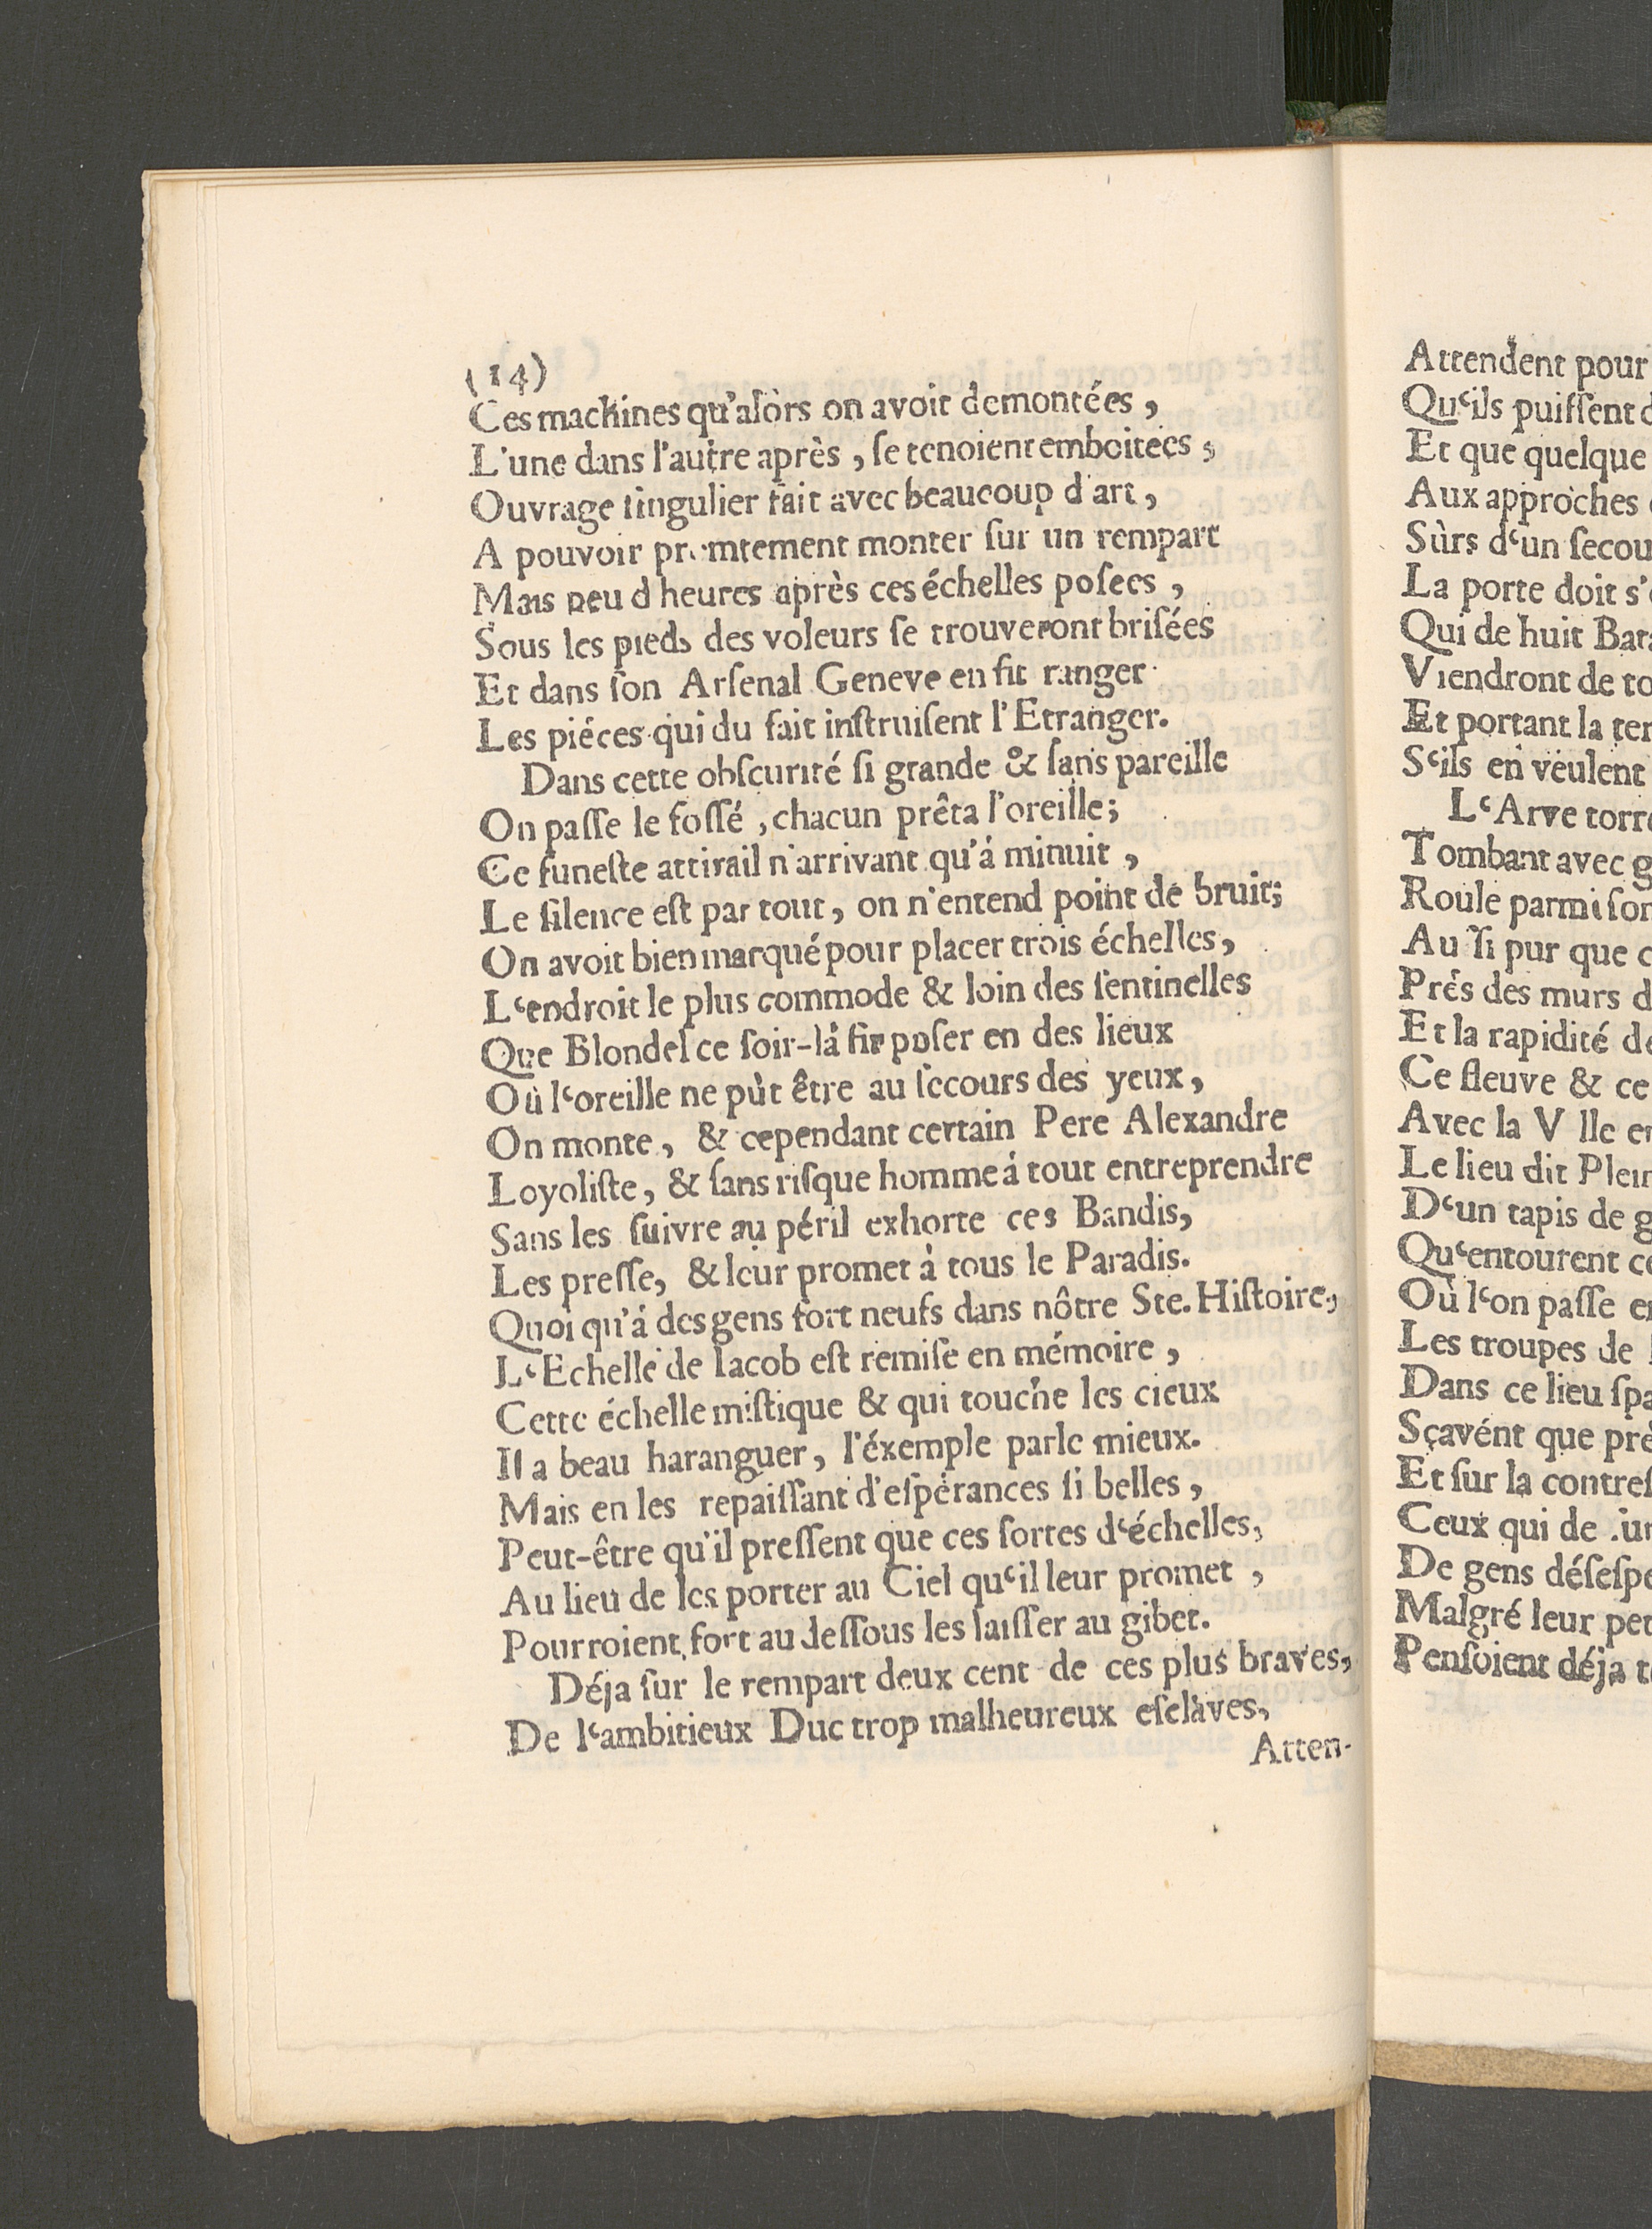 (14)
Ces machines qu'alòrs on avoit demontées,
L'une dans l'autre après, ſe tenoient emboitées,
Ouvrage ſingulier fait avec beaucoup d'art,
A pouvoir promtement monter ſur un rempart
Mais peu d heures après ces échelles poſees,
Sous les pieds des voleurs ſe trouveront briſées
Et dans ſon Arſenal Geneve en fit ranger
Les piéces qui du fait inſtruiſent l'Etranger.
Dans cette obſcurité ſi grande & ſans pareille
On paſſe le foſſé, chacun prêta l'oreille;
Ce funeſte attirail n'arrivant qu'á minuit,
Le ſilence eſt par tout, on n'entend point de bruit;
On avoit bien marqué pour placer trois échelles,
L‘endroit le plus commode & loin des ſentinelles
Que Blondel ce ſoir-lá fit poſer en des lieux
Où l‘oreille ne pùt être au ſecours des yeux,
On monte, & cependant certain Pere Alexandre
Loyoliſte, & ſans riſque homme á tout entreprendre
Sans les ſuivre au péril exhorte ces Bandis,
Les preſſe, & leur promet à tous le Paradis.
Quoi qu'á des gens fort neufs dans nôtre Ste. Hiſtoire,
L‘Echelle de Iacob eſt remiſe en mémoire,
Cette échelle miſtique & qui touche les cieux
Il a beau haranguer, l'éxemple parle mieux.
Mais en les repaiſſant d'eſpérances ſi belles,
Peut-être qu'il preſſent que ces ſortes d‘échelles,
Au lieu de les porter au Ciel qu‘il leur promet,
Pourroient fort au deſſous les laiſſer au gibet.
Déja ſur le rempart deux cent de ces plus braves,
De l‘ambitieux Duc trop malheureux eſclàves,
Atten-
Attendent pour
Qu‘ils puiſſent
Et que quelque
Aux approches
Sùrs d‘un ſecou
La porte doit s'
Qui de huit Bat
Viendront de to
Et portant la ter
S‘ils en veulent
L‘Arve torr
Tombant avec g
Roule parmi ſon
Au ſi pur que c
Prés des murs d
Et la rapidité de
Ce fleuve & ce
Avec la V lle e
Le lieu dit Plein
D‘un tapis de g
Qu‘entourent c
Où l‘on paſſe e
Les troupes de
Dans ce lieu ſpa
Sçavént que prè
Et ſur la contreſ
Ceux qui de
De gens déſeſpe
Malgré leur pet
Penſoient déja t